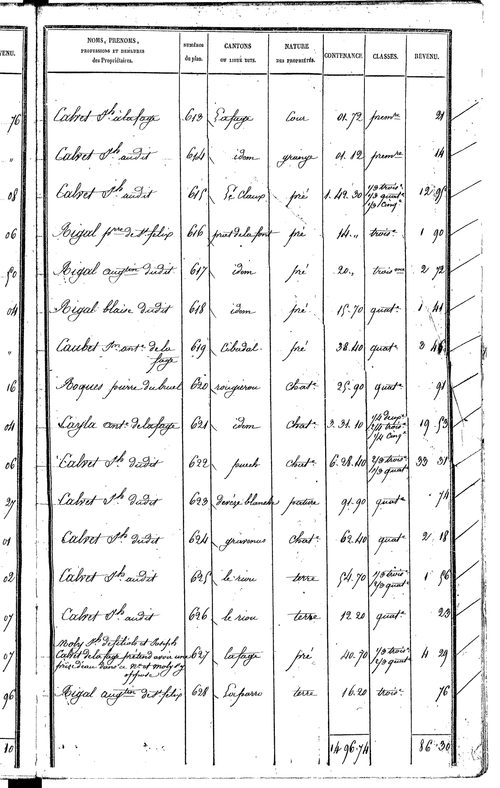 VENU.
NOMS, PRENOMS, PROFESSIONS ET DEMEURES des Propriétaires. NUMÉROS du plan. CANTONS OU LIEUX DITS. NATURE DES PROPRIÉTÉS. CONTENANCE. CLASSES. REVENU.
76 Calvet Jh. de la fage 613 Lafage Cour 01.72 premre 21
" Calvet Jh. dudit 614 idem grange 01.12 premre 14
08 Calvet Jh. dudit 615 Le Claux pré 1.49.30 1/3 trois. 1/3 quat. 1/3 Cinq. 12 95
06 Rigal pierre de St. felix 616 prat de la font pré 14." trois. 1 90
50 Rigal augtin dudit 617 idem pré 20." trois 2 72
04 Rigal blaise dudit 618 idem pré 15.70 quat. 1 41
" Caubet ant. de la fage 619 pré 38.40 quat. 3
16 Roques pierre du bruel 620 chat. 25.90 quat. 91
04 Layla ant. de lafage 621 idem Chat. 3.31.10 1/4 deux. 2/4 trois. 1/4 Cinq. 19 53
06 Calvet Jh. dudit 622 puech chat. 6.28.40 2/3 trois. 1/3 quat. 33 31
27 Calvet Jh dudit 623 deveze blanche pature 91.90 quat. 74
01 Calvet Jh dudit 624 gravenous Chat. 62.40 quat. 2 18
02 Calvet Jh. dudit 625 le riou terre 54.70 1/3 trois. 2/3 quat. 1 56
07 Calvet Jh. dudit 626 le riou terre 12.20 quat. 23
07 Moly Jh. et Joseph Calvet de la fage prétend avoir une prise d'eau dans ce No. et moly s'y oppose 627 lafage pré 40.70 1/3 trois. 2/3 quat. 4 29
96 Rigal augtin de St. felix 628 Laparro terre 16.20 trois. 76
10 14.96.74 86.30